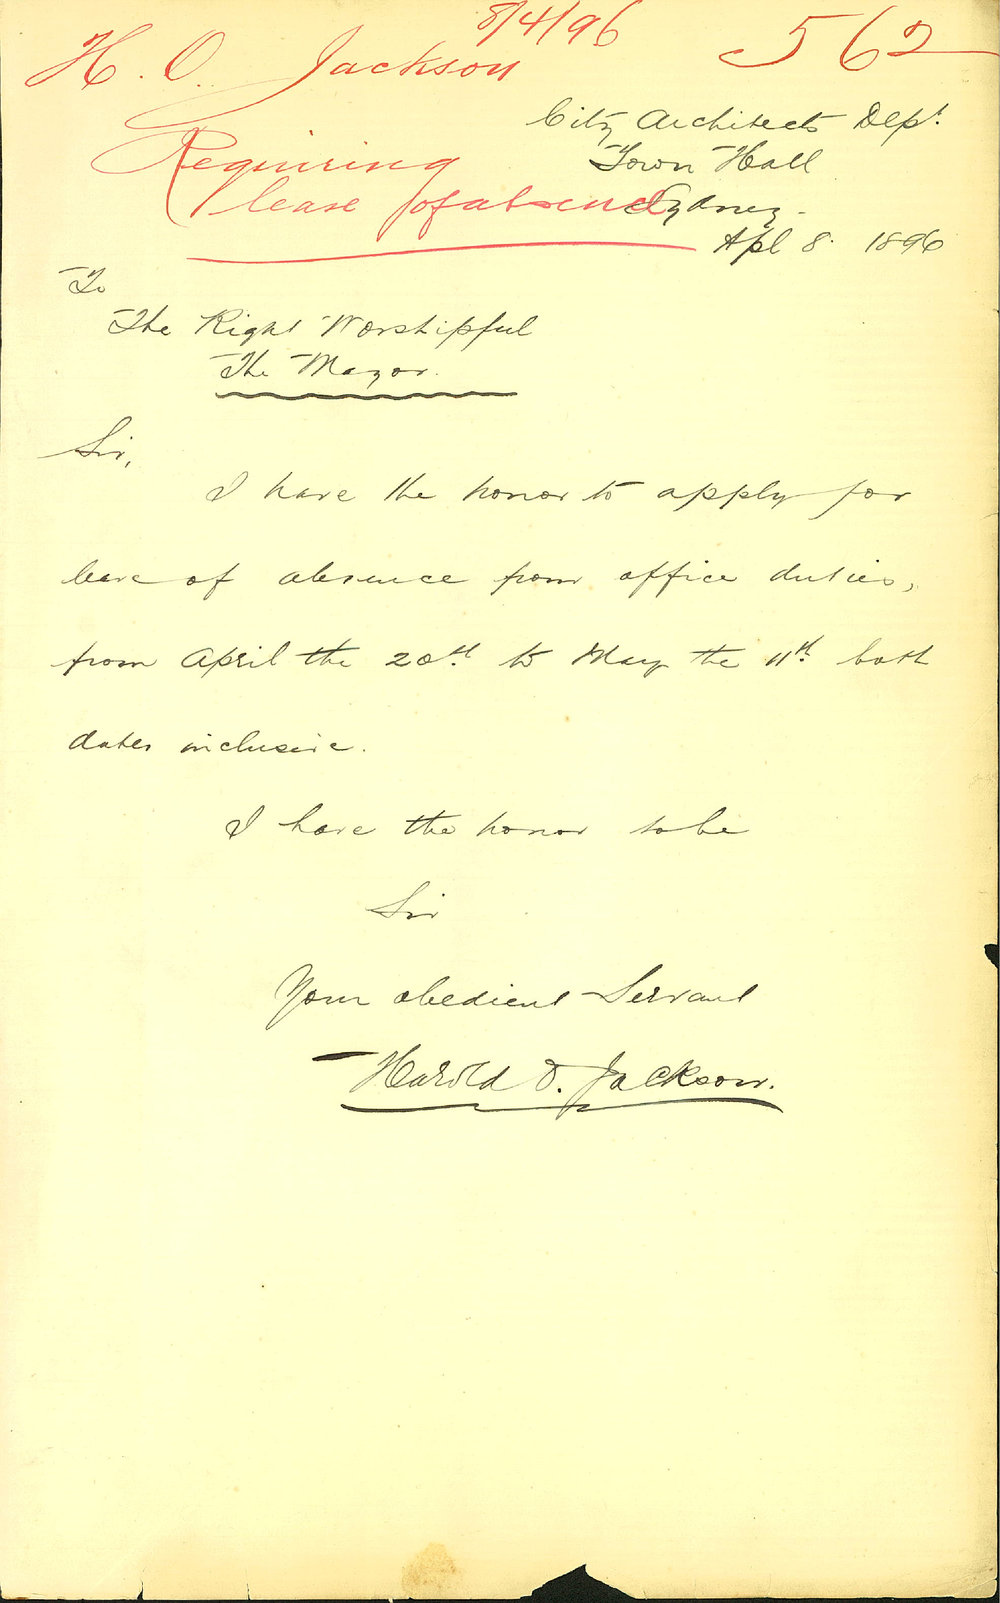 8/4/96
562
H. O. Jackson
Requiring
leave of absence
City Architects Dept.
Town Hall
Sydney.
Apl 8. 1896
To
The Right Worshipful
The Mayor.
Sir,
I have the honor to apply for
leave of absence from office duties,
from April the 20th to May the 11th both
dates inclusive.
I have the honor to be
Sir
Your obedient Servant
Harold O. Jackson.